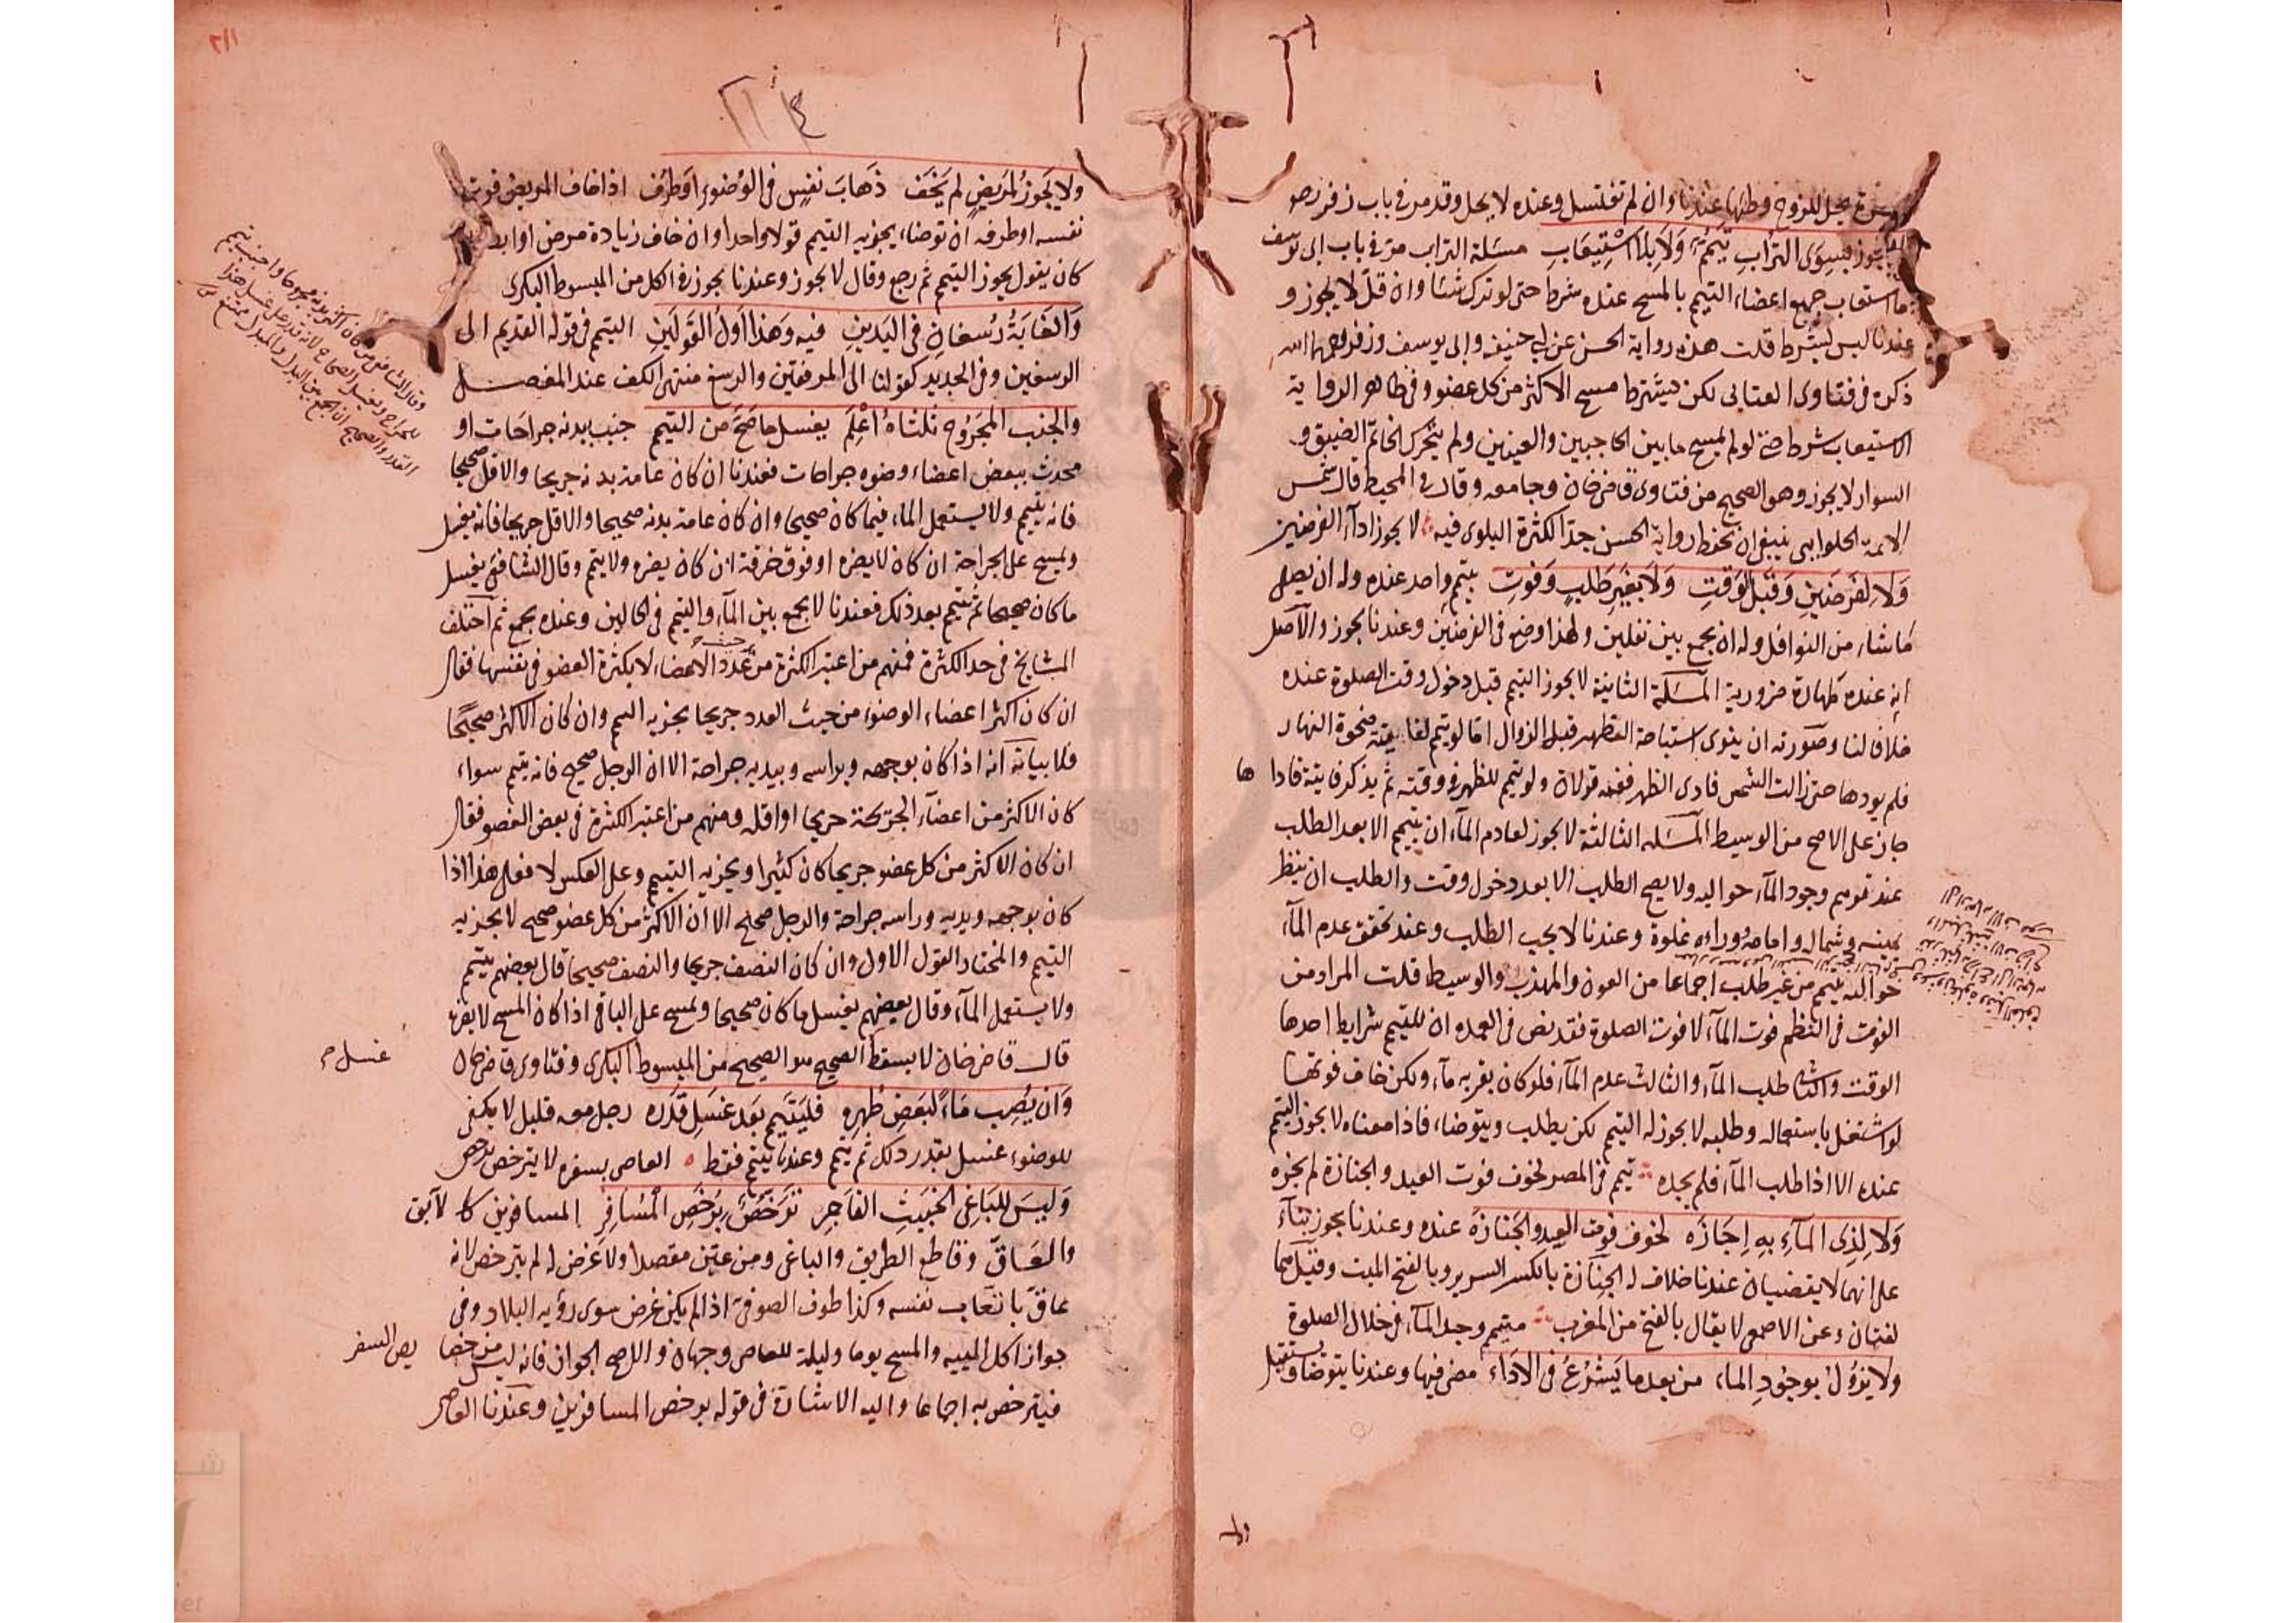 يحل للزوج وطئها عندنا وان لم تغتسل وعنده لا يحل وقد مر في باب زفر رحمه
يجوز بسوى التراب تيمم ولا بلا استيعاب مسئلة التراب مر في باب ابى يوسف
ما استيعاب جميع اعضاء التيمم بالمسح عنده شرط حتى لو ترك شيئا وان قل لا يجوز و
عندنا ليس بشرط قلت هذه رواية الحسن عن ابي حنيفه وابى يوسف وزفر رحمهما الله
ذكره في فتاوى العتابى لكن يشترط مسح الاكثر من كل عضو وفي ظاهر الرواية
الاستيعاب شرط حتى لو لم يمسح ما بين الحاجبين والعينين ولم يتحرك الخاتم الضيق و
السوار لا يجوز وهو الصحيح من فتاوى قاضى خان وجامعه وقال في المحيط قال شمس
الائمة الحلوايى ينبغى ان تحفظ رواية الحسن جدا لكثرة البلوى فيه لا يجوز اداء الفرضين
ولا لفرضين وقبل الوقت ولا بغير طلب وفوت بتيمم واحد عنده وله ان يصلى
ما شاء من النوافل وله ان يجمع بين نفلين ولهذا وضع في الفرضين وعندنا يجوز والاصل
انه عنده طهارة ضرورية المسئلة الثانية لا يجوز التيمم قبل دخول وقت الصلوة عنده
خلافا لنا وصورته ان ينوى استباحة الظهر قبل الزوال اما لو تيمم لفايتة ضحوة النهار
فلم يودها حتى زالت الشمس فادى الظهر ففيه قولان ولو تيمم للظهر في وقته ثم يذكر فايتة فاداها
جاز على الاصح من الوسيط المسئله الثالثة لا يجوز لعادم الماء ان يتيمم الا بعد الطلب
عند توهم وجود الماء حواليه ولا يصح الطلب الا بعد دخول وقت والطلب ان ينظر
يمينه وشماله وامامه ووراءه غلوة وعندنا لا يجب الطلب وعند تحقق عدم الماء
حواليه يتيمم من غير طلب اجماعا من العون والمهذب والوسيط قلت المراد من
الفوت في النظم فوت الماء لا فوت الصلوة فقد نص في العمده ان للتيمم شرايط احدها
الوقت والثانى طلب الماء والثالث عدم الماء فلو كان بقربه ماء ولكن خاف فوتها
لو اشتغل باستعماله وطلبه لا يجوز له التيمم لكن يطلب ويتوضاء فاذا معناه لا يجوز التيمم
عنده الا اذا طلب الماء فلم يجده تيمم في المصر لخوف فوت العيد والجنازة لم يجزه
ولا لذى الماء به اجازه لخوف فوت العيد والجنازه عنده وعندنا يجوز بناء
على انهما لا يقضيان عندنا خلافا له الجنازة بالكسر السرير وبالفتح الميت وقيل هما
لغتان وعن الاصمعى لا يقال بالفتح من المغرب متيمم وجد الماء في خلال الصلوة
ولا يزول بوجود الماء من بعد ما يشرع في الاداء مضى فيها وعندنا يتوضا ويستقبل
ولا يجوز لمريض لم يخف ذهاب نفس في الوضوء او طرف اذا خاف المريض فوت
نفسه او طرفه ان توضاء يجزيه التيمم قولا واحدا وان خاف زيادة مرض او
كان يقول يجوز التيمم ثم رجع وقال لا يجوز وعندنا يجوز في الكل من المبسوط البكرى
والغاية رسغان في اليدين فيه وهذا اول القولين التيمم في قوله القديم الى
الرسغين وفي الجديد كقولنا الى المرفقين والرسغ منتهى الكف عند المفصل
والجنب المجروح ثلثاه اعلم يغسل ما صح من التيمم جنب ببدنه جراحات او
محدث ببعض اعضاء وضوه جراحات فعندنا ان كان عامة بدنه جريحا والاقل صحيحا
فانه يتيمم ولا يستعمل الماء فيما كان صحيحا وان كان عامة بدنه صحيحا والاقل جريحا فانه يغسل
ويمسح على الجراحة ان كان لا يضره او فوق خرقة ان كان يضره ولا يتيمم وقال الشافعى يغسل
ما كان صحيحا ثم يتيمم بعد ذلك فعندنا لا يجمع بين الماء والتيمم في الحالين وعنده يجمع ثم اختلف
المشايخ في حد الكثرة فمنهم من اعتبر الكثرة من عدد الاعضاء لا بكثرة العضو في نفسها فقال
ان كان اكثر اعضاء الوضوء من حيث العدد جريحا يجزيه التيمم وان كان الاكثر صحيحا
فلا بيانه انه اذا كان بوجهه وبراسه وبيديه جراحة الا ان الرجل صحيح فانه يتيمم سواء
كان الاكثر من اعضاء الجريحة جريحا او اقله ومنهم من اعتبر الكثرة في بعض العضو فقال
ان كان الاكثر من كل عضو جريحا كان كثيرا ويجزيه التيمم وعلى العكس لا فعلى هذا اذا
كان بوجهه ويديه وراسه جراحة والرجل صحيح الا ان الاكثر من كل عضو صحيح لا يجزيه
التيمم والمختار القول الاول وان كان النصف جريحا والنصف صحيحا قال بعضهم يتيمم
ولا يستعمل الماء وقال بعضهم يغسل ما كان صحيحا ويمسح على الباقي اذا كان المسح لا يضره
قال قاضى خان لا يسقط الصحيح هو الصحيح من المبسوط البكرى وفتاوى قاضى خان
غسل
وان يصب ماء لبعض طهره فليتيمم بعد غسل قدره رجل معه قليل لا يكفى
للوضوء غسل بقدر ذلك ثم يتيمم وعندنا يتيمم فقط العاصى بسفره لا يترخص برخص
وليس للباغى الخبيث الفاجر ترخص برخص المسافر المسافرين كالآبق
والعاق وقاطع الطريق والباغى ومن عين مقصدا ولا غرض له لم يترخص لانه
عاق باتعاب نفسه وكذا طوف الصوفى اذا لم يكن غرض سوى رؤيه البلاد وفى
جواز اكل الميته والمسح يوما وليلة للعاصى وجهان والاصح الجواز فانه ليس من خصا
يص السفر
فيترخص به اجماعا واليه الاشارة في قوله برخص المسافرين وعندنا العاصى